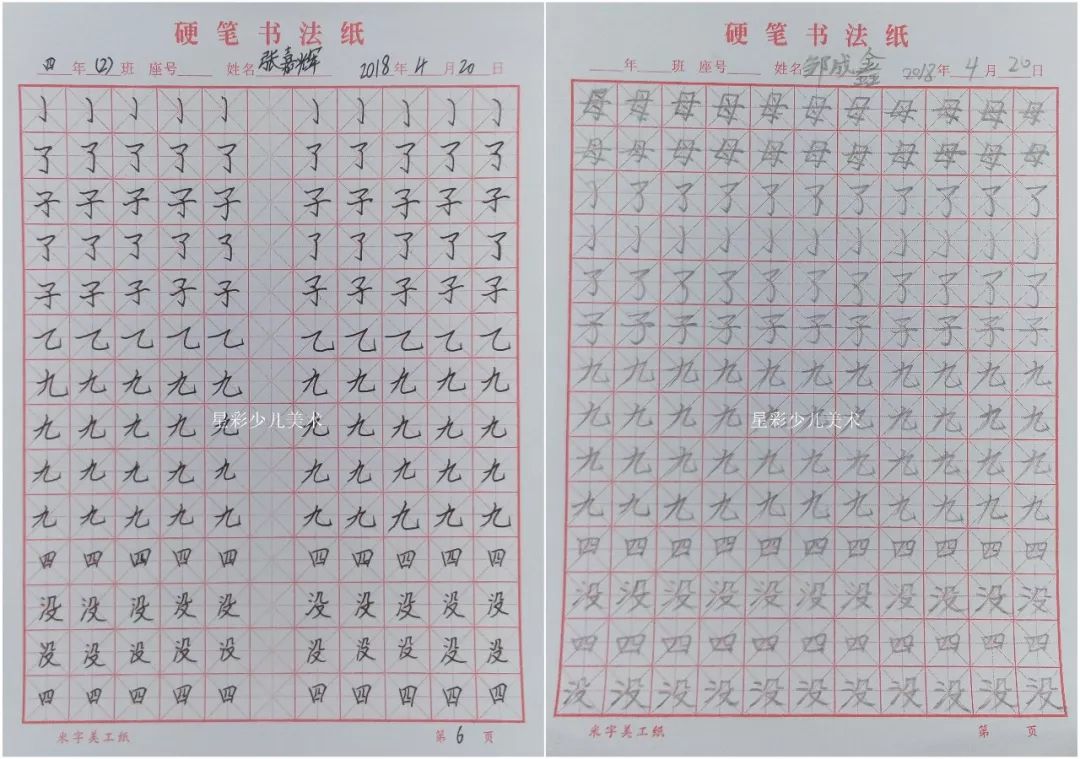 硬笔书法纸
四年(2)班 座号 姓名张嘉辉 2018年4月20日
亅亅亅亅亅 亅亅亅亅亅
了了了了了 了了了了了
子子子子子 子子子子子
了了了了了 了了了了了
子子子子子 子子子子子
乙乙乙乙乙 乙乙乙乙乙
九九九九九 九九九九九
九九九九九 九九九九九
星彩少儿美术
九九九九九 九九九九九
九九九九九 九九九九九
四四四四四 四四四四四
没没没没没 没没没没没
没没没没没 没没没没没
四四四四四 四四四四四
米字美工纸 第6页
硬笔书法纸
年 班 座号 姓名邹成鑫 2018年4月20日
母母母母母母母母母母母
母母母母母母母母母母母
亅了了了了了了了了了了
亅亅亅亅亅亅亅亅亅亅亅
了了了了了了了了了了了
子子子子子子子子子子子
九九九九九九九九九九九
九九九九九九九九九九九
星彩少儿美术
九九九九九九九九九九九
九九九九九九九九九九九
四四四四四四四四四四四
没没没没没没没没没没没
四四四四四四四四四四四
没没没没没没没没没没没
米字美工纸 第 页